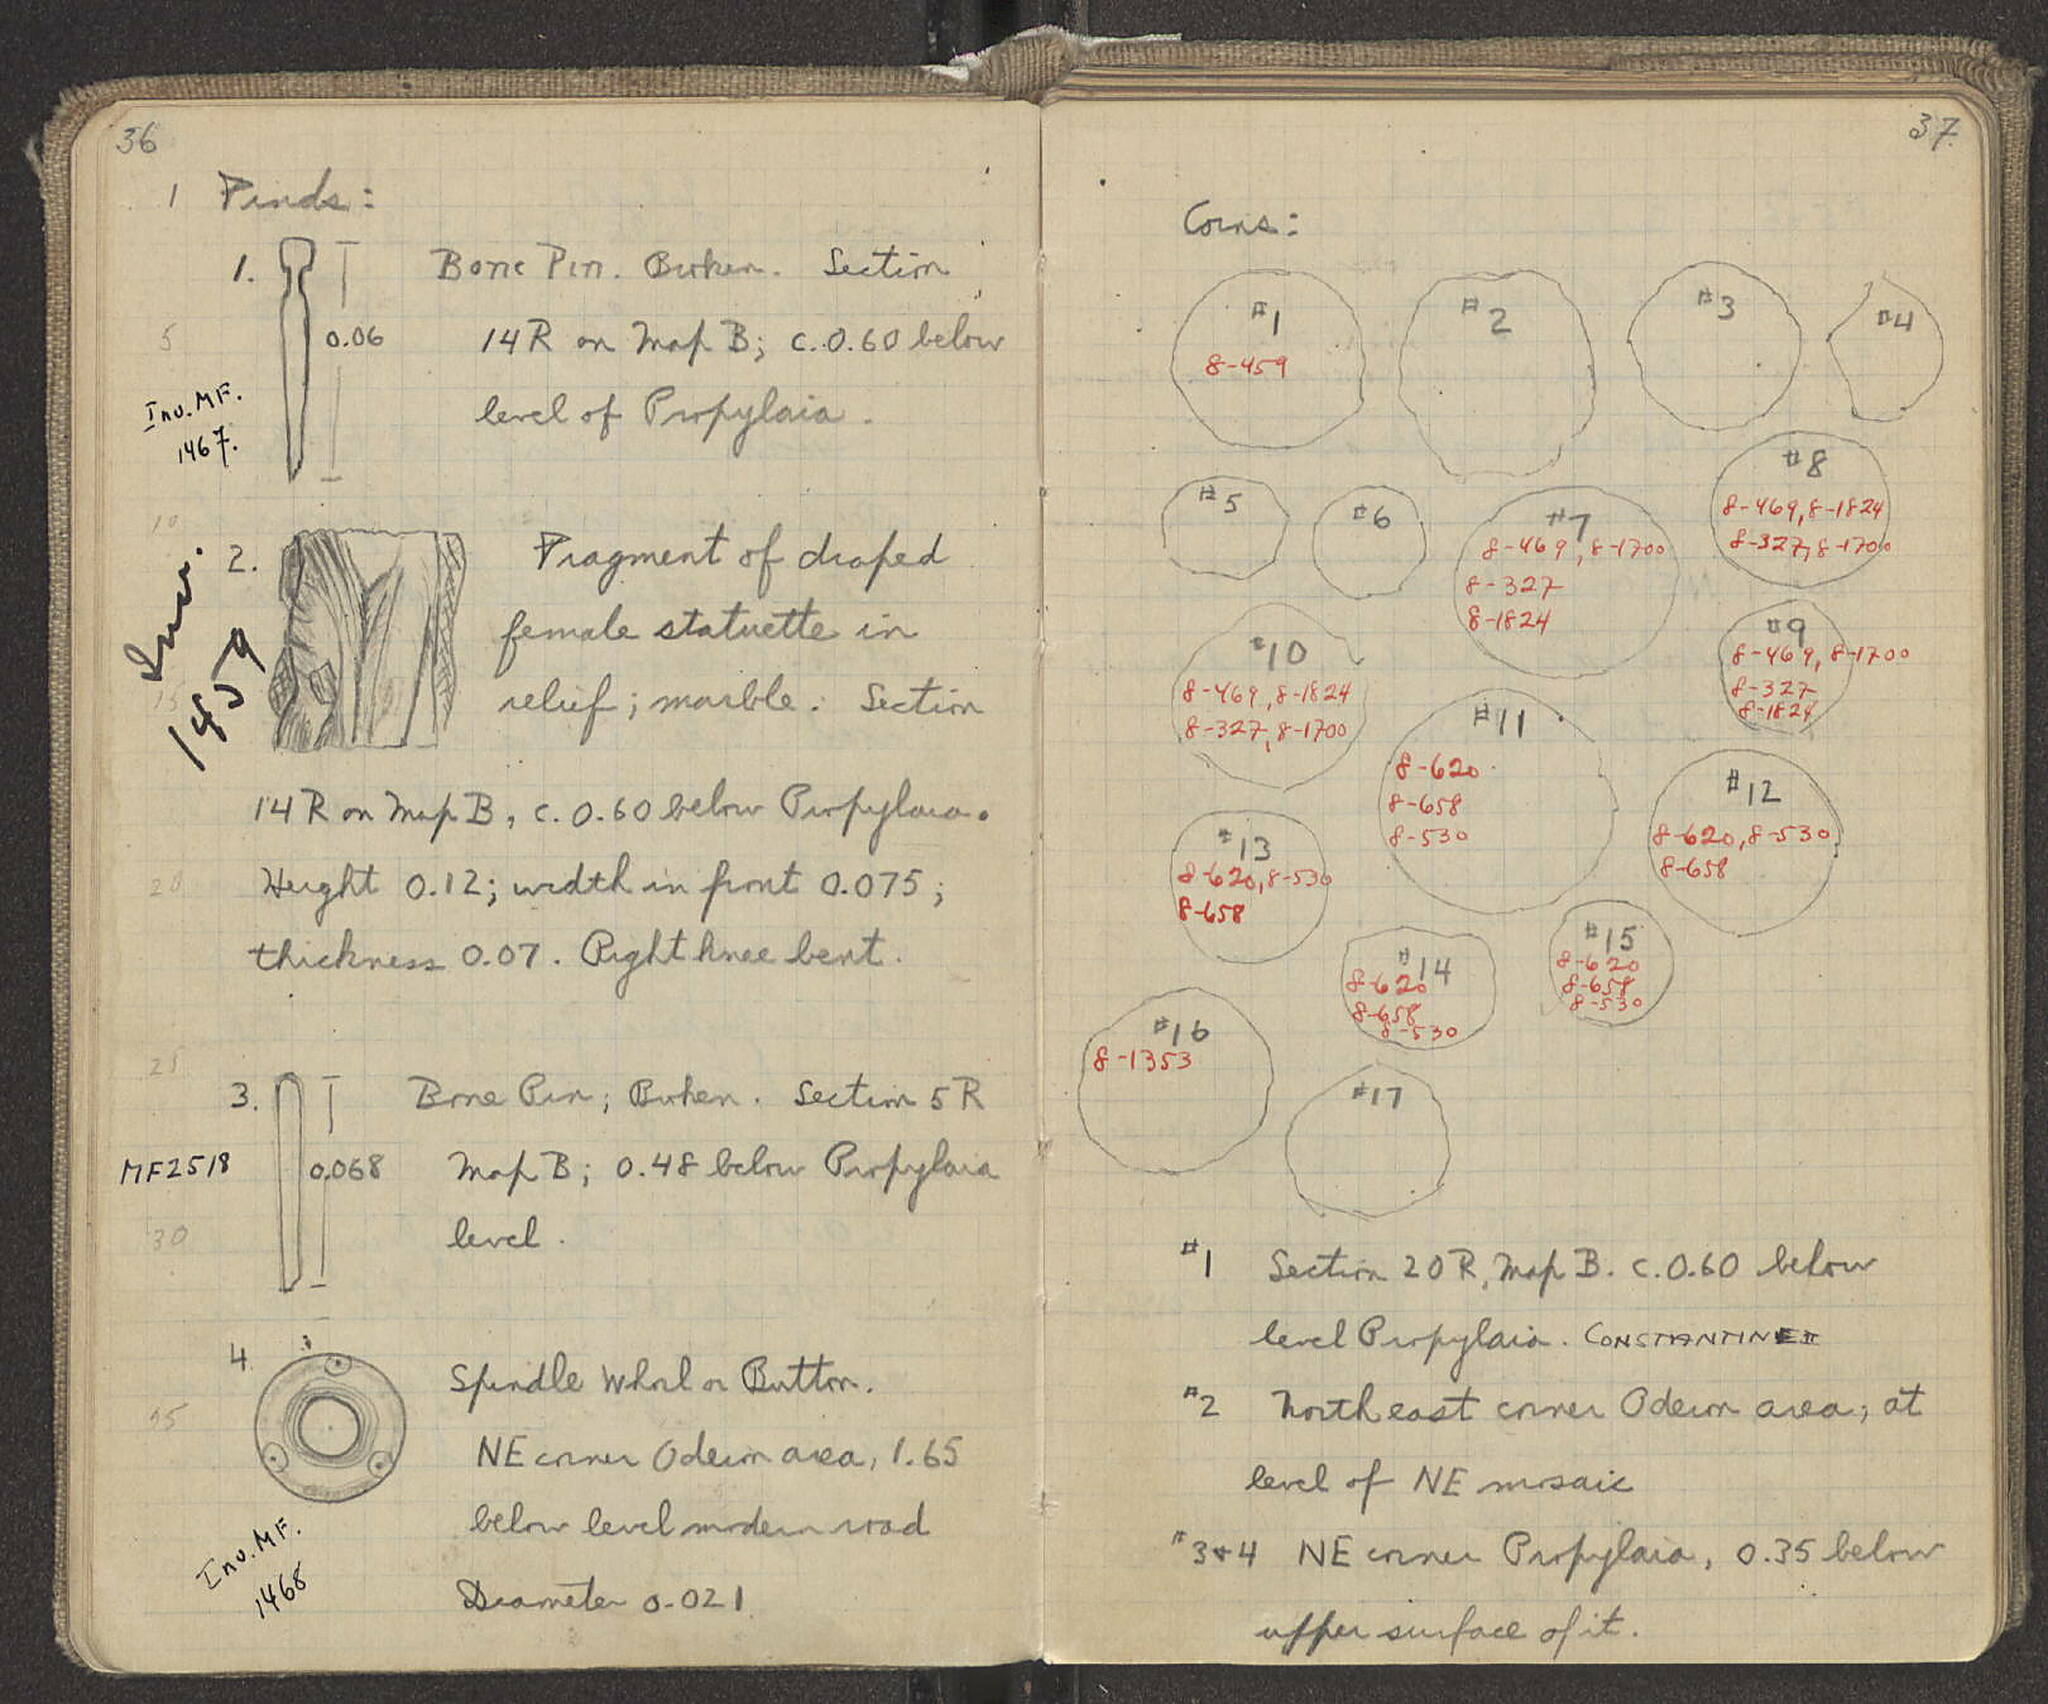 36
1 Finds:
1. Bone Pin. Broken. Section
5 0.06 14R on Map B; c. 0.60 below
Inv. MF. 1467.
level of Propylaia.
10
2. Fragment of draped
female statuette in
Inv. 1459
15 relief; marble. Section
14R on Map B, c. 0.60 below Propylaia.
20 Height 0.12; width in front 0.075;
thickness 0.07. Right knee bent.
25
3. Bone Pin; Broken. Section 5R
MF2518 0.068 Map B; 0.48 below Propylaia
30 level.
4. Spindle Whorl or Button.
35 NE corner Odeum area, 1.65
below level modern road
Inv. MF. 1468
Diameter 0.021
37
Coins:
#1
8-459
#2
#3
#4
#5
#6
#7
8-469, 8-1700
8-327
8-1824
#8
8-469, 8-1824
8-327, 8-1700
#9
8-469, 8-1700
8-327
8-1824
#10
8-469, 8-1824
8-327, 8-1700
#11
8-620
8-658
8-530
#12
8-620, 8-530
8-658
#13
8-620, 8-530
8-658
#14
8-620
8-658
8-530
#15
8-620
8-658
8-530
#16
8-1353
#17
#1 Section 20R, Map B. c. 0.60 below
level Propylaia. CONSTANTINE II
#2 North east corner Odeum area, at
level of NE mosaic
#3+4 NE corner Propylaia, 0.35 below
upper surface of it.